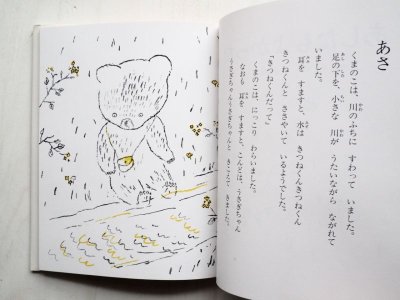 あさ
くまのこは、川のふちに すわって いました。
足の下を、小さな 川が うたいながら ながれて
いました。
耳を すますと、水は きつねくんきつねくん
きつねくんと ささやいて いるようでした。
「きつねくんだって」
くまのこは、にっこり わらいました。
なおも 耳を すますと、こんどは、うさぎちゃん
うさぎちゃんうさぎちゃんと きこえて きました。